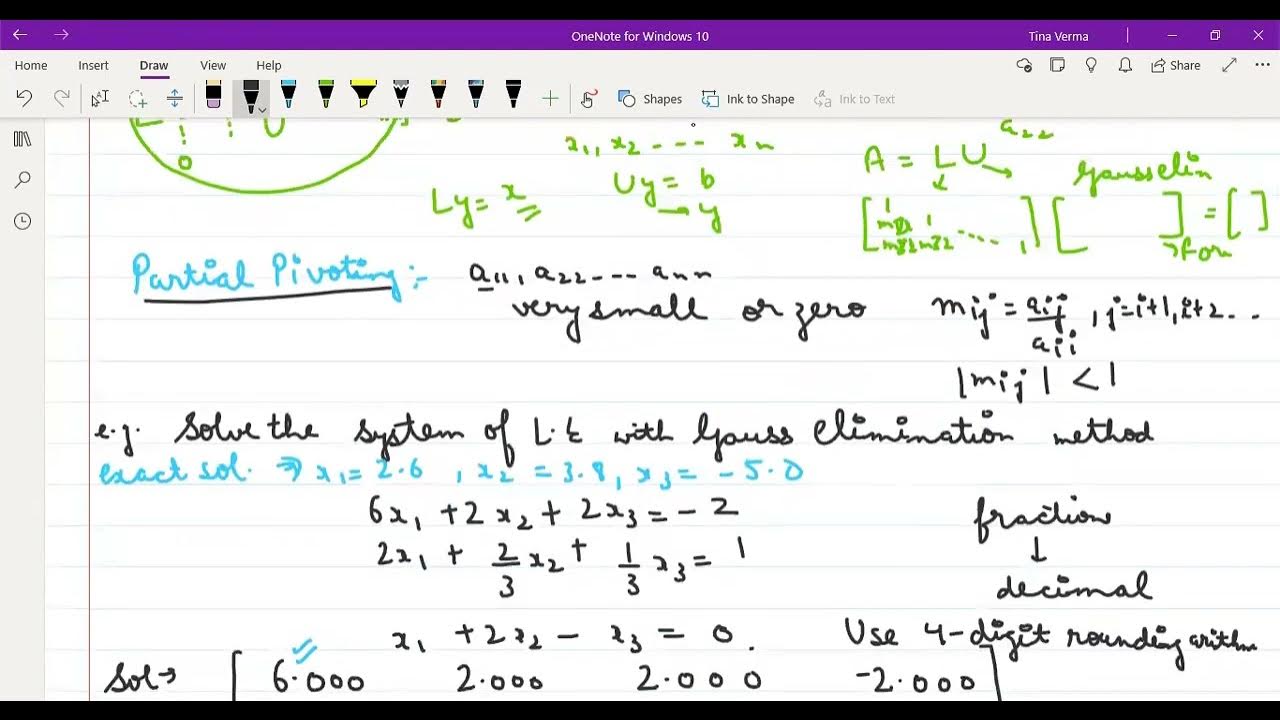 OneNote for Windows 10
Tina Verma
Home Insert Draw View Help
Share
Shapes
Ink to Shape
Ink to Text
U
0
x1, x2 ---- xn
Ly = x
Uy = b
→ y
A = LU
a22
Gauss elim
1
m21 1
m31 m32 .... 1
= [ ]
→ for
Partial Pivoting :-
a11, a22 ---- ann
very small or zero
mij = aij / aii , j=i+1, i+2 ...
|mij| < 1
e.g. Solve the system of L.E with Gauss Elimination method
exact sol. ⇒ x1 = 2.6 , x2 = 3.8, x3 = -5.0
6x1 + 2x2 + 2x3 = -2
2x1 + 2/3 x2 + 1/3 x3 = 1
x1 + 2x2 - x3 = 0.
fractions
↓
decimal
Use 4-digit rounding arithm
Sol→ [ 6.000 2.000 2.000 -2.000 ]